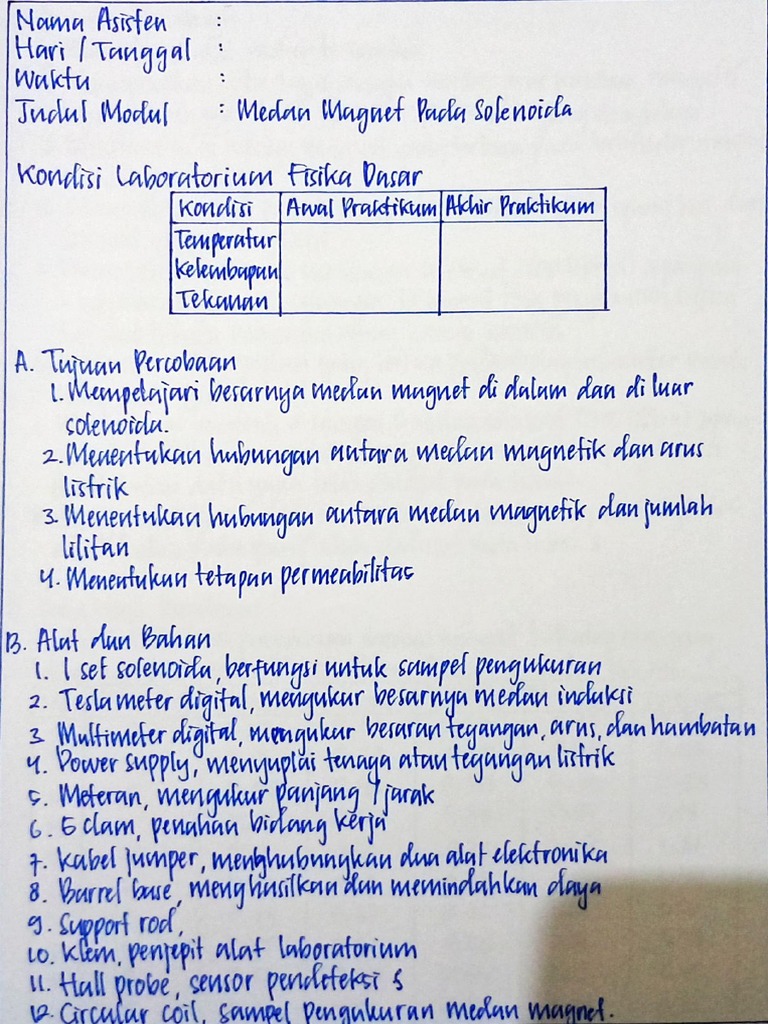 Nama Asisten :
Hari / Tanggal :
Waktu :
Judul Modul : Medan Magnet Pada Solenoida
Kondisi Laboratorium Fisika Dasar
Kondisi Awal Praktikum Akhir Praktikum
Temperatur
Kelembapan
Tekanan
A. Tujuan Percobaan
1. Mempelajari besarnya medan magnet di dalam dan di luar
solenoida.
2. Menentukan hubungan antara medan magnetik dan arus
listrik
3. Menentukan hubungan antara medan magnetik dan jumlah
lilitan
4. Menentukan tetapan permeabilitas
B. Alat dan Bahan
1. 1 set solenoida, berfungsi untuk sampel pengukuran
2. Tesla meter digital, mengukur besarnya medan induksi
3. Multimeter digital, mengukur besaran tegangan, arus, dan hambatan
4. Power supply, menyuplai tenaga atau tegangan listrik
5. Meteran, mengukur panjang / jarak
6. G clam, penahan bidang kerja
7. Kabel jumper, menghubungkan dua alat elektronika
8. Barrel base, menghasilkan dan memindahkan daya
9. Support rod,
10. Klem, penjepit alat laboratorium
11. Hall probe, sensor pendeteksi
12. Circular coil, sampel pengukuran medan magnet.